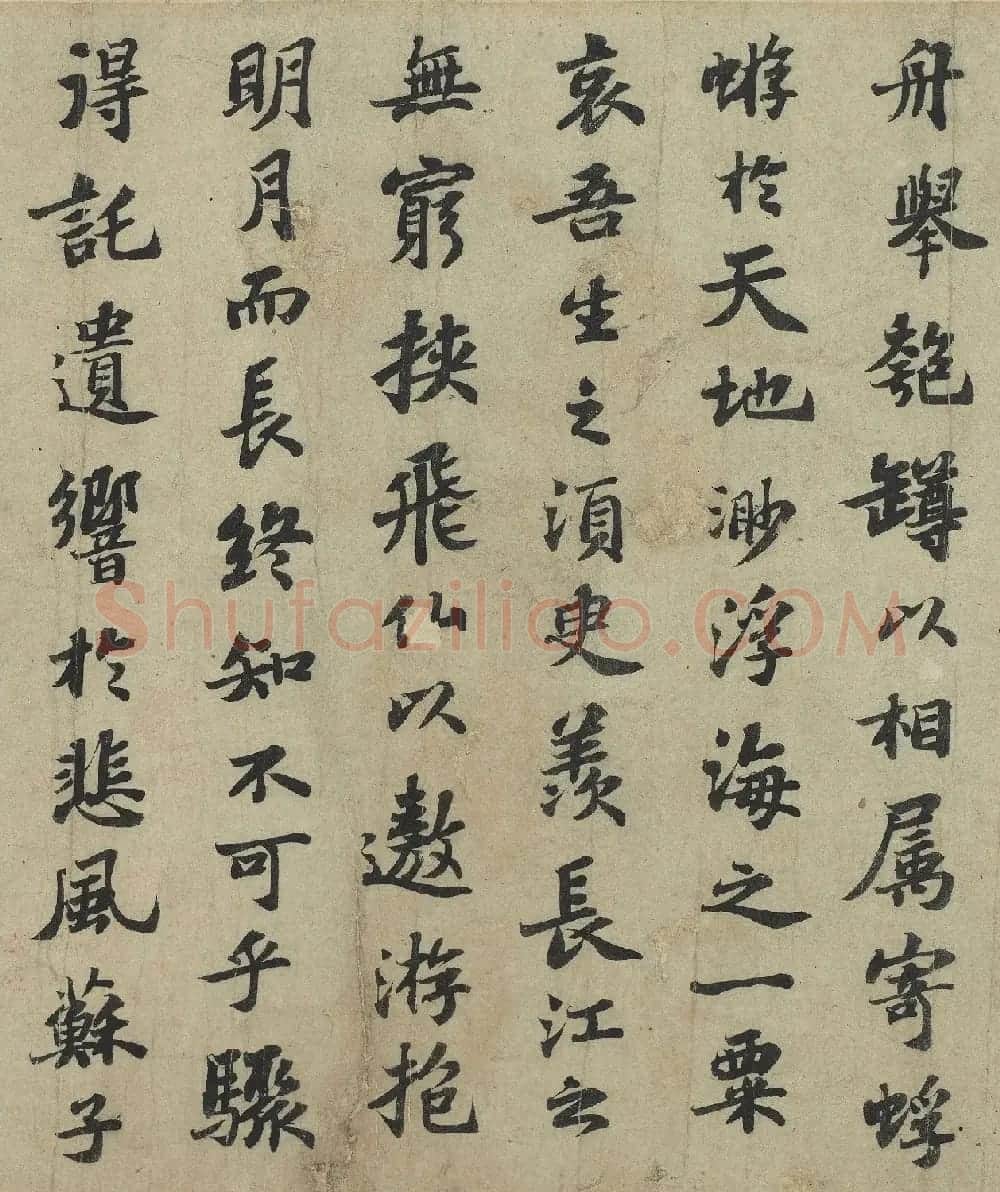 舟舉匏罇以相属寄蜉
蝣於天地渺浮海之一粟
哀吾生之湏臾羨長江之
無窮挾飛仙以遨游抱
明月而長終知不可乎驟
得託遺響於悲風蘇子
Shufaziliao.COM